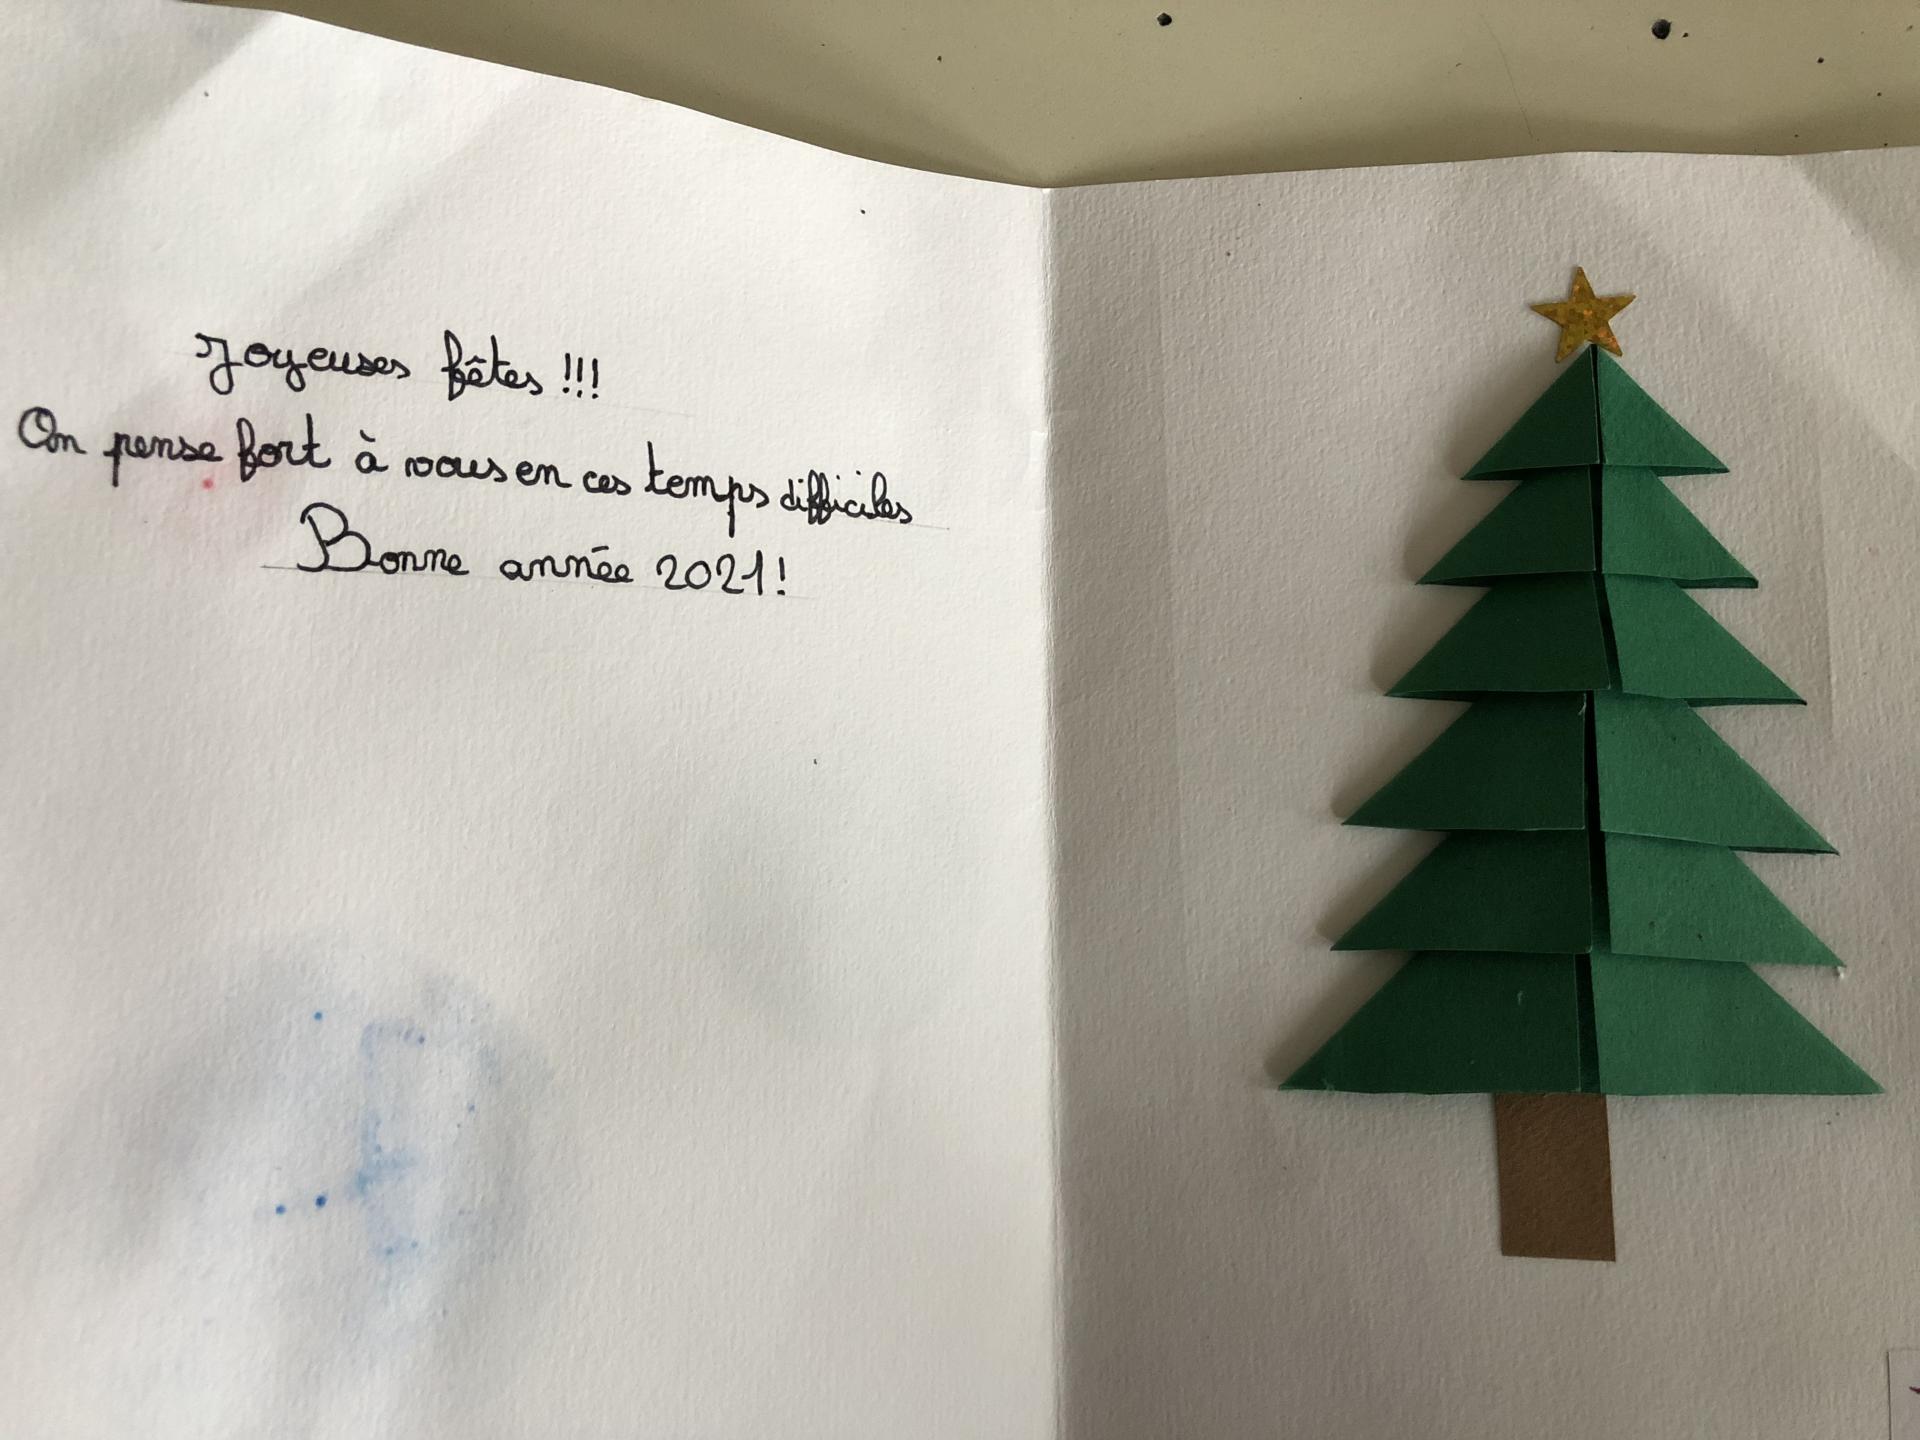 Joyeuses fêtes !!!
On pense fort à vous en ces temps difficiles
Bonne année 2021 !